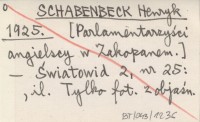 SCHABENBECK Henryk
1925. [Parlamentarzyści
angielscy w Zakopanem.]
— Światowid 2, nr 25:
, il. Tylko fot. z objaśn.